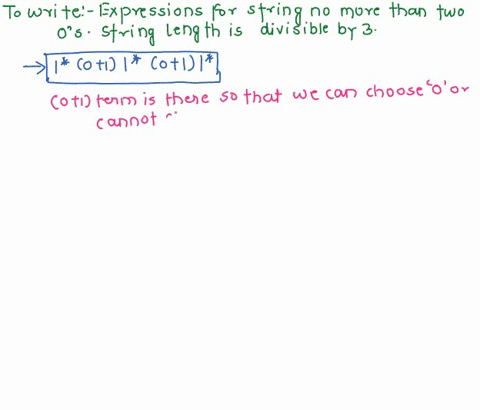 To write:- Expressions for string no more than two
0's. string length is divisible by 3.
→ 1* (0+1) 1* (0+1) 1*
(0+1) term is there so that we can choose '0' or
cannot